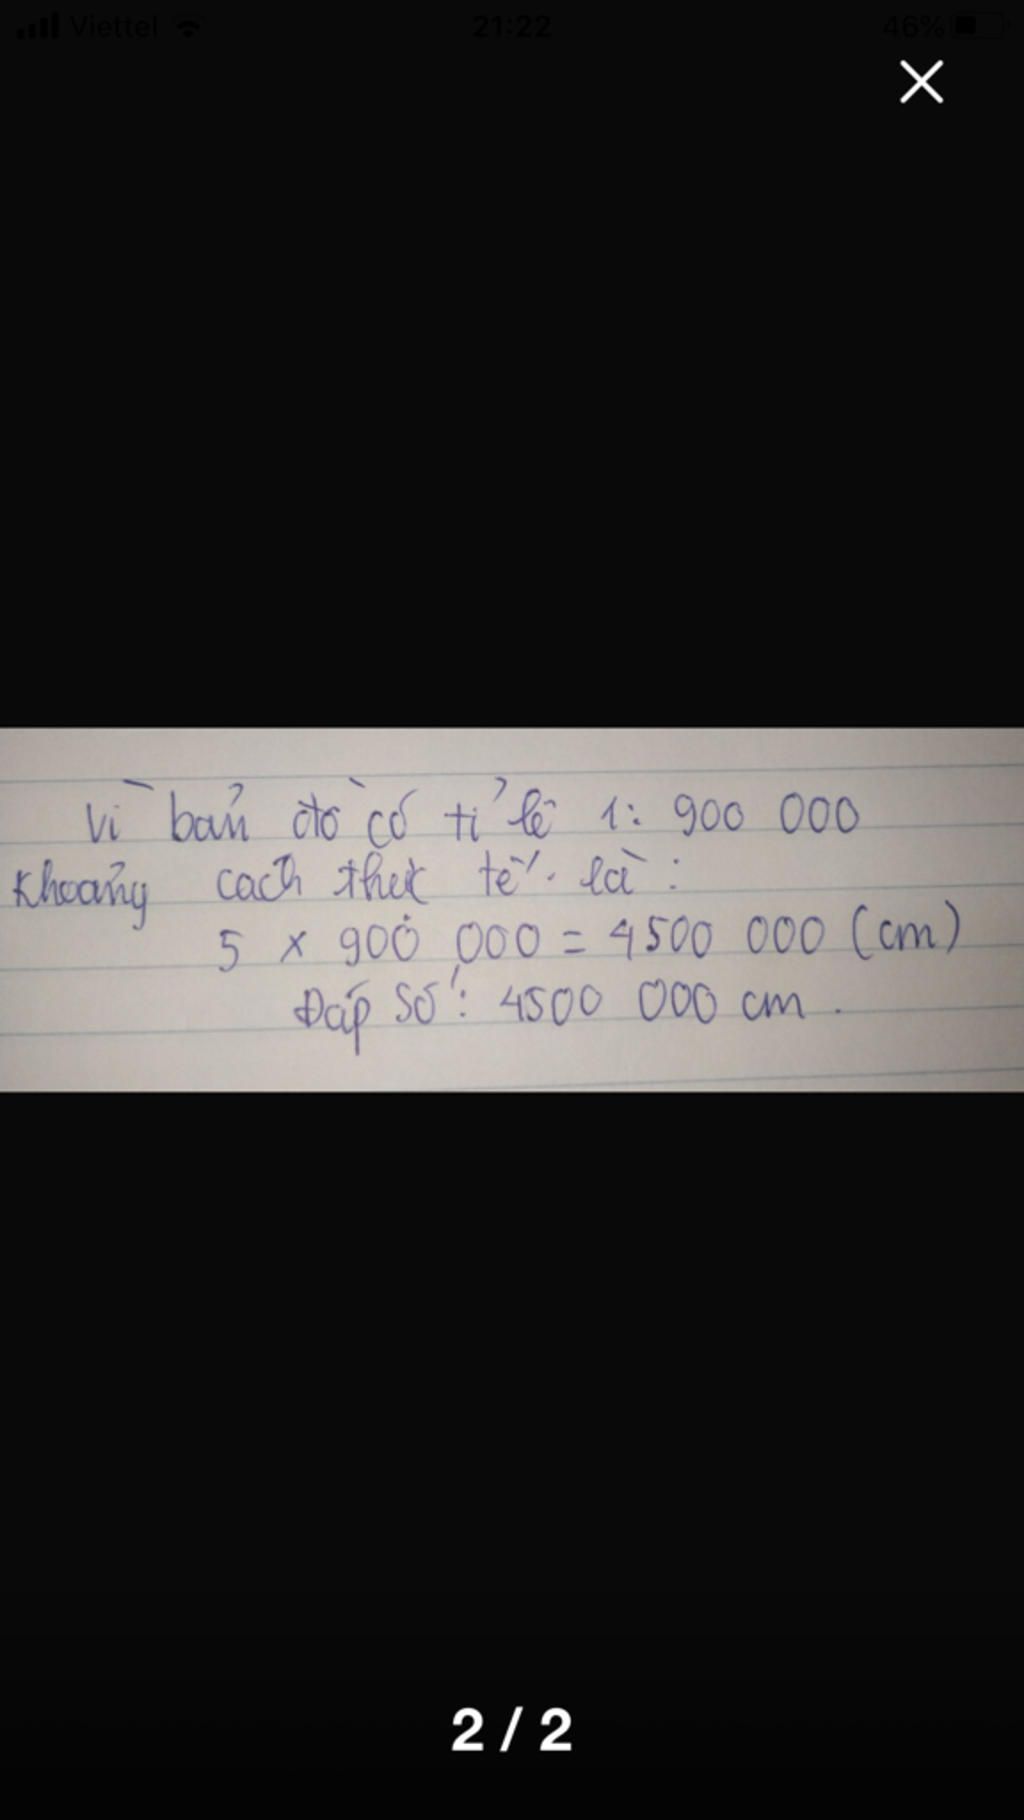 Viettel 21:22 46%
Vì bản đồ có tỉ lệ 1: 900 000
Khoảng cach thực tế là:
5 x 900 000 = 4500 000 (cm)
Đáp Số: 4500 000 cm.
2 / 2